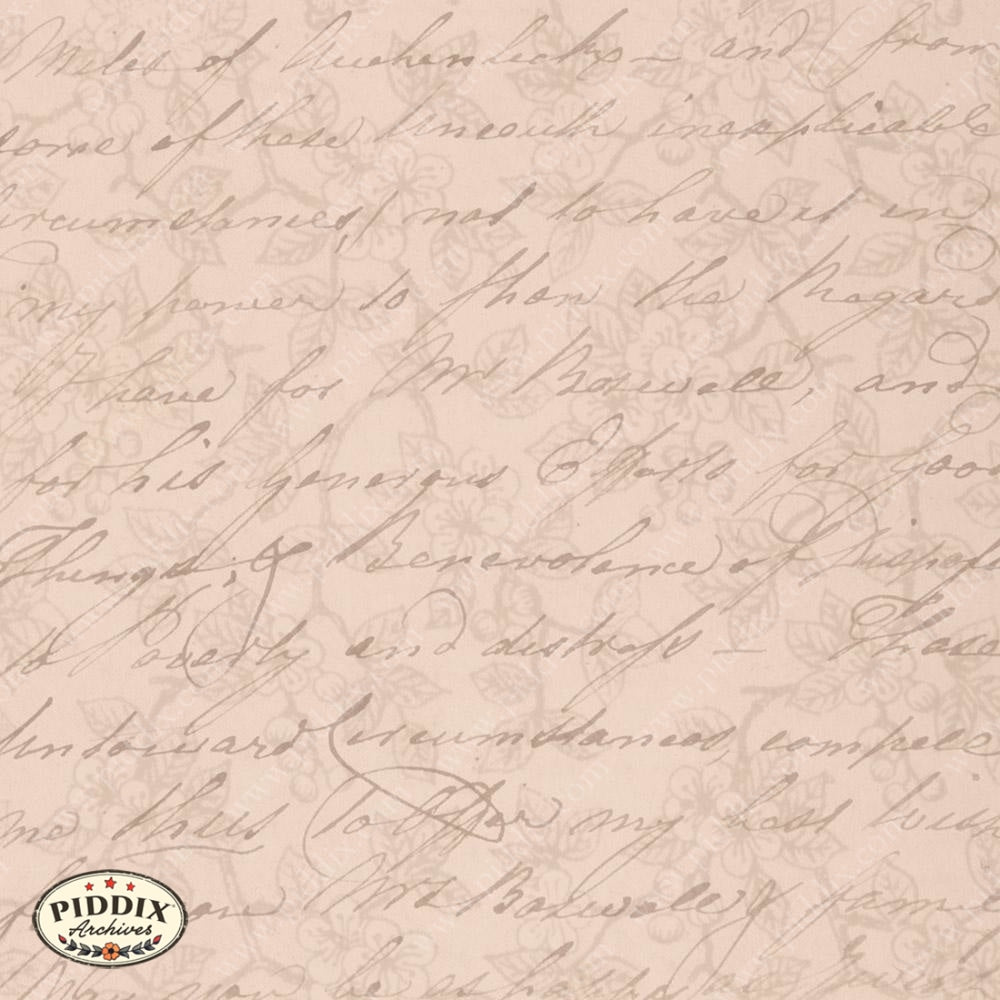 Miles of Auchenlecks – and from
some of these Uncouth inexplicable
ircumstances, not to have it in
my power to shew the Regard
I have for Mr Boswell, and
for his generous Efforts for good
Things, & Benevolence of
to Poverty and distress – These
Untoward Circumstances, compell
me thus To Offer my best wish
Mrs Boswell &
May you be as happy
PIDDIX
Archives